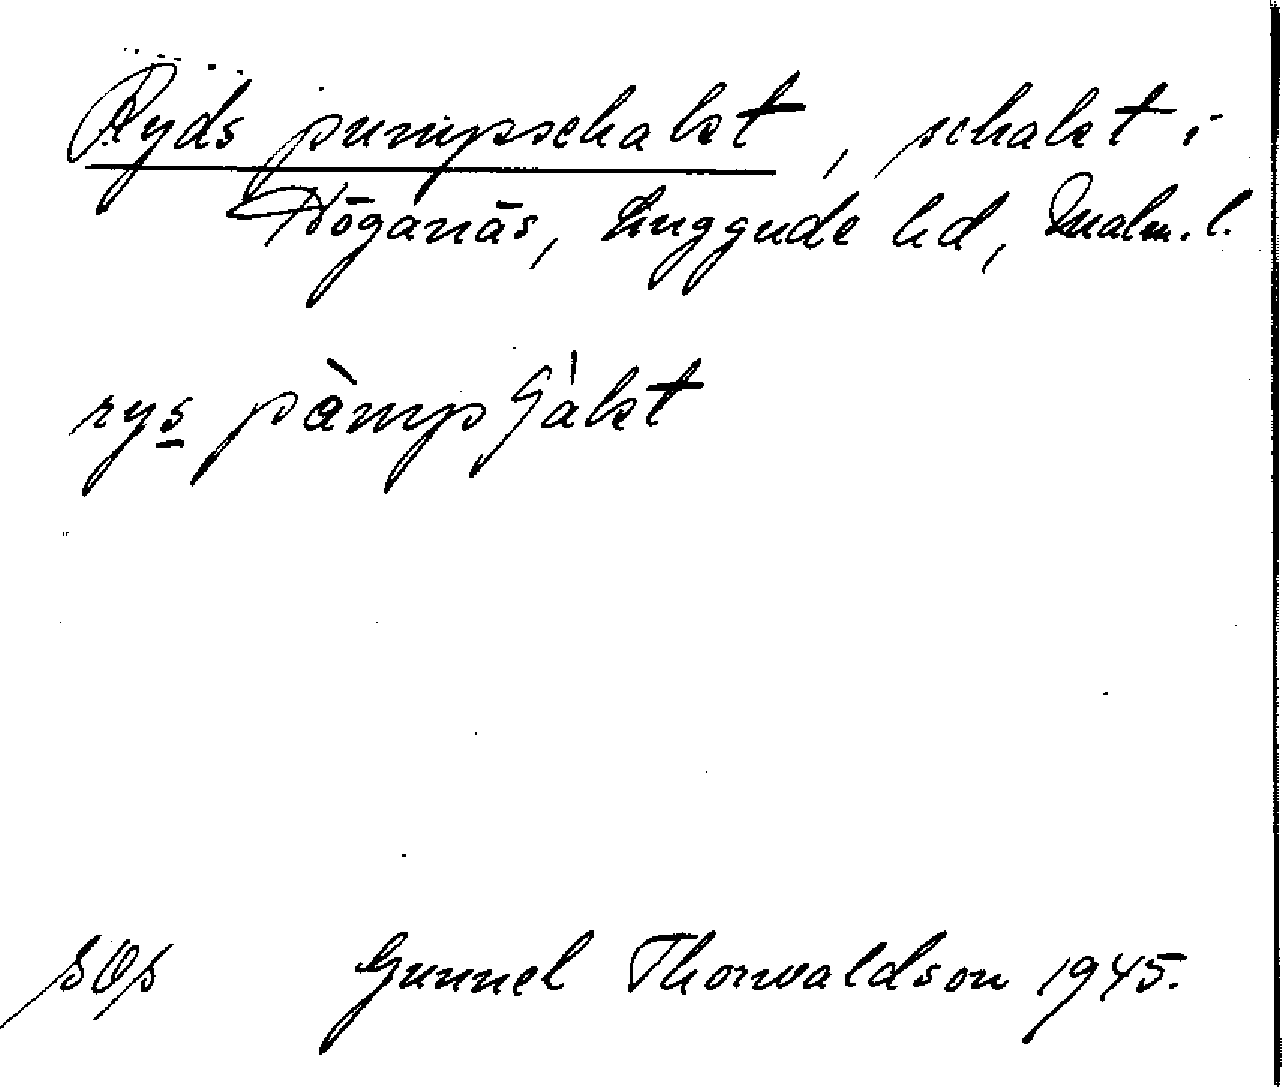 Ryds pumpschakt, schakt i
Höganäs, Luggude hd, Malm. l.
rys pàmpʃákt
Gunnel Thorwaldson 1945.